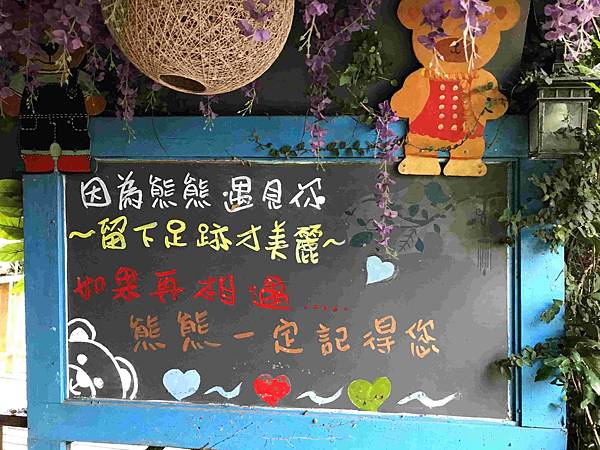 因為熊熊遇見你
~留下足跡才美麗~
如果再相遇.....
熊熊一定記得您